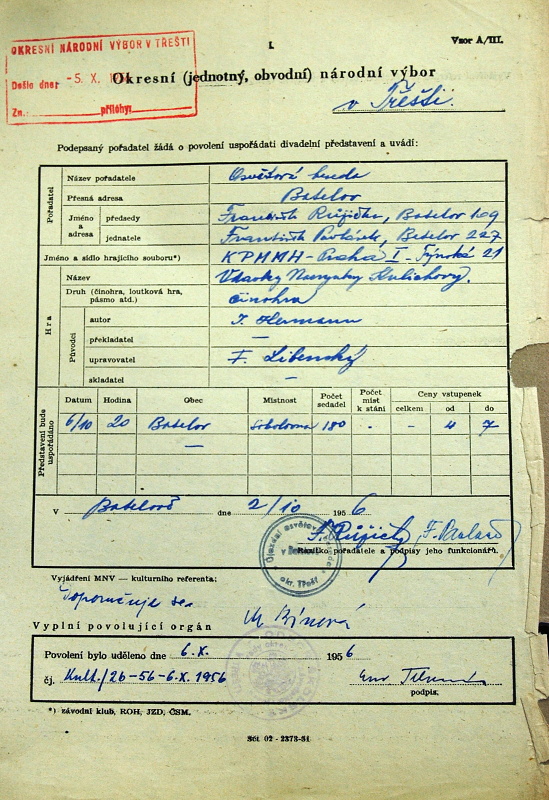 OKRESNÍ NÁRODNÍ VÝBOR V TŘEŠTI
Došlo dne: -5. X.
Zn.: přílohy:
I.
Vzor A/III.
Okresní (jednotný, obvodní) národní výbor
v Třešti.
Podepsaný pořadatel žádá o povolení uspořádati divadelní představení a uvádí:
Pořadatel
Název pořadatele Osvětová beseda
Přesná adresa Batelov
Jméno a adresa předsedy František Růžička, Batelov 109
jednatele František Batelov 227
Jméno a sídlo hrajícího souboru*) KPMMH - Praha I - Týnská 21
Hra
Název Vdavky Nanynky Kulichovy.
Druh (činohra, loutková hra, pásmo atd.) činohra
Původci
autor I. Hermann
překladatel —
upravovatel F. Libenský
skladatel —
Představení bude uspořádáno
Datum Hodina Obec Místnost Počet sedadel Počet míst k stání Ceny vstupenek
celkem od do
6/10 20 Batelov Sokolovna 180 - - 4 7
—
V Batelově dne 2/10 1956
F. Růžička, F.
Razítko pořadatele a podpisy jeho funkcionářů.
Újezdní osvětová beseda v Batelově okr. Třešť
Vyjádření MNV — kulturního referenta:
Doporučuje se.
M. Bínová
Vyplní povolující orgán
Povolení bylo uděleno dne 6.X. 1956
čj. Kult./26-56-6.X.1956
podpis.
*) závodní klub, ROH, JZD, ČSM.
Sét 02 - 2373-51